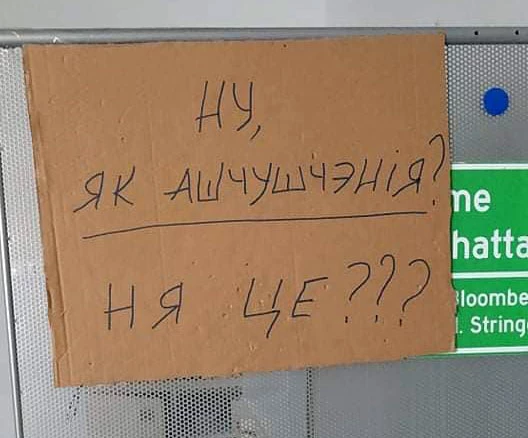 НУ,
ЯК АШЧУШЧЭНІЯ?
НЯ ЦЕ???
me
hatta
Bloombe
. String